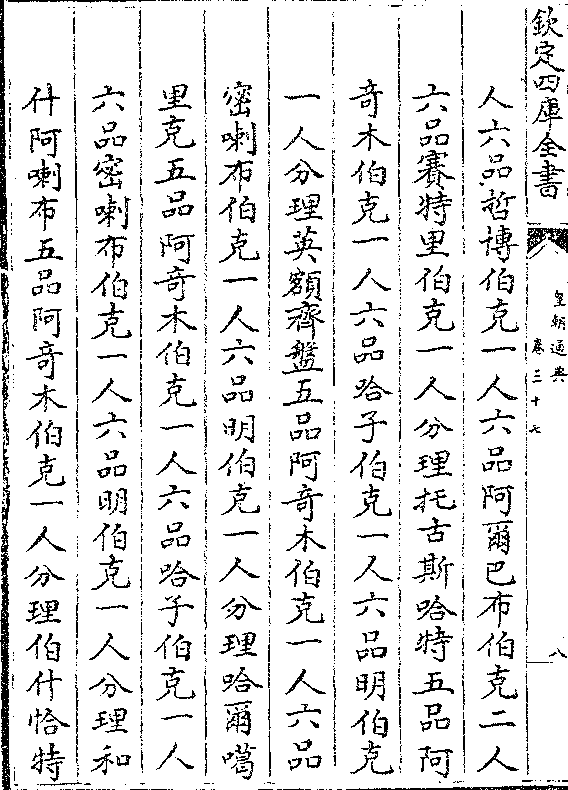 欽定四庫全書
皇朝通典
卷三十七
八
人六品哲博伯克一人六品阿爾巴布伯克二人
六品賽特里伯克一人分理托古斯哈特五品阿
奇木伯克一人六品哈子伯克一人六品明伯克
一人分理英額齊盤五品阿奇木伯克一人六品
密喇布伯克一人六品明伯克一人分理哈爾噶
里克五品阿奇木伯克一人六品哈子伯克一人
六品密喇布伯克一人六品明伯克一人分理和
什阿喇布五品阿奇木伯克一人分理伯什恰特